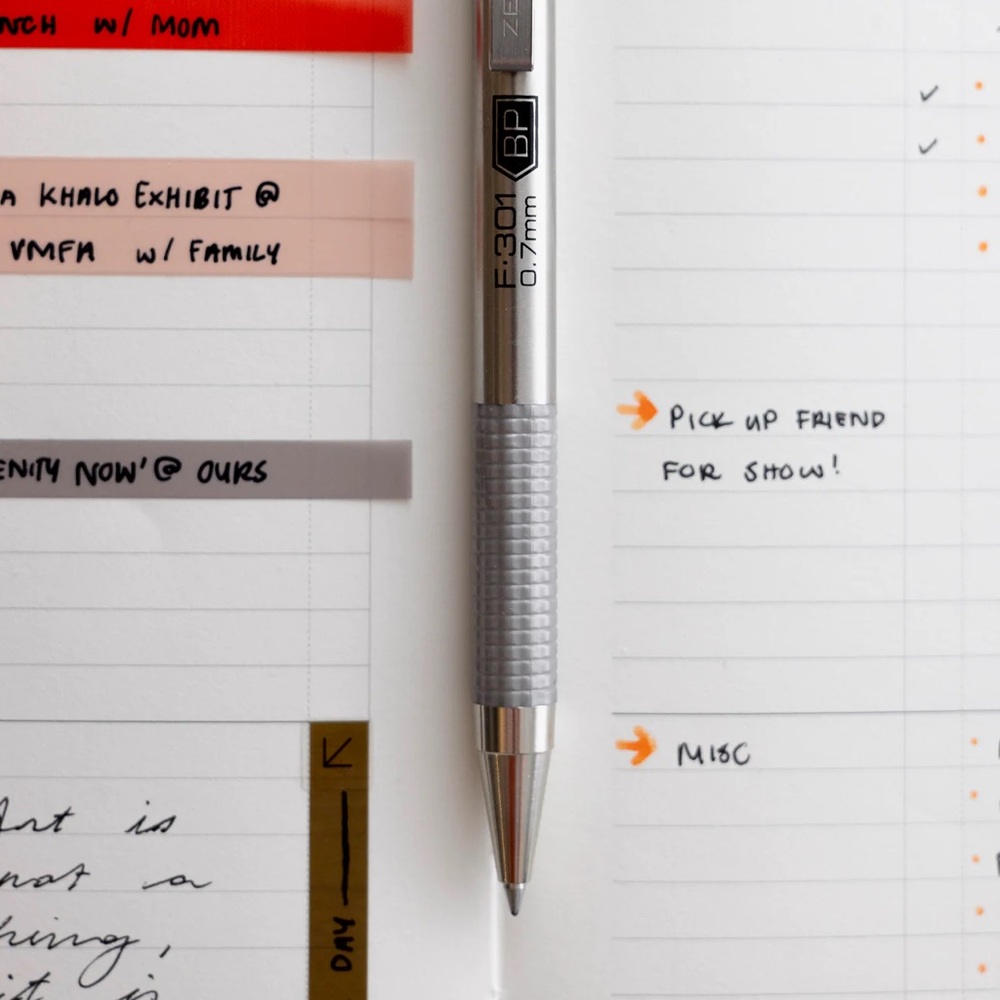 NCH W/ MOM
A KHALO EXHIBIT @
VMFA W/ FAMILY
ENITY NOW' @ OURS
Art is
not a
hing,
it is
DAY
ZE
BP
F-301
0.7mm
PICK UP FRIEND
FOR SHOW!
MISC